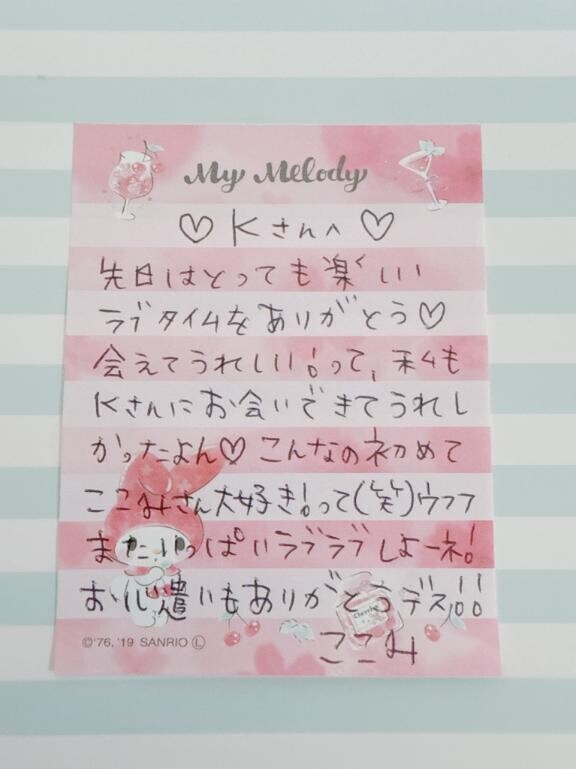 My Melody
♡ Kさんへ ♡
先日はとっても楽しい
ラブタイムをありがとう♡
会えてうれしい!って、私も
Kさんにお会いできてうれし
かったよん♡こんなの初めて
ここみさん大好き!って(笑)ウフフ
またいっぱいラブラブしよーネ!
お心遣いもありがとうデス!!
©'76, '19 SANRIO Ⓛ
ここみ